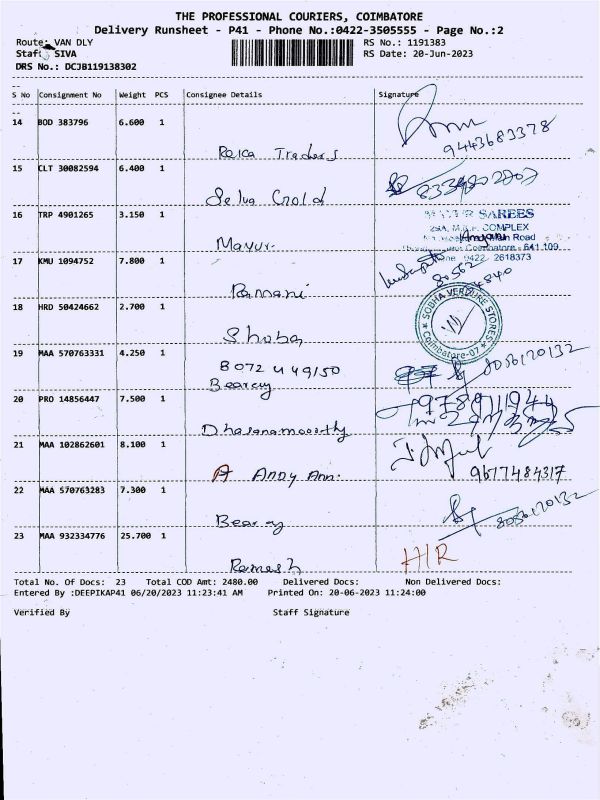 THE PROFESSIONAL COURIERS, COIMBATORE
Delivery Runsheet - P41 - Phone No.:0422-3505555 - Page No.:2
Route: VAN DLY RS No.: 1191383
Staff: SIVA RS Date: 20-Jun-2023
DRS No.: DCJB119138302
S No Consignment No Weight PCS Consignee Details Signature
14 BOD 383796 6.600 1
9443683378
Traders
15 CLT 30082594 6.400 1
Selva Gold
16 TRP 4901265 3.150 1
SAREES
COMPLEX
Main Road
Coimbatore - 641 109
0422 2618373
Mayur
17 KMU 1094752 7.800 1
Ramani
18 HRD 50424662 2.700 1
SOBHA VERDURE STORES
Coimbatore-07
Shoba
19 MAA 570763331 4.250 1
8056120132
Bearcy
20 PRO 14856447 7.500 1
21 MAA 102862601 8.100 1
9677484317
22 MAA 570763283 7.300 1
8056120132
23 MAA 932334776 25.700 1
HR
Ramesh
Total No. Of Docs: 23 Total COD Amt: 2480.00 Delivered Docs: Non Delivered Docs:
Entered By :DEEPIKAP41 06/20/2023 11:23:41 AM Printed On: 20-06-2023 11:24:00
Verified By Staff Signature